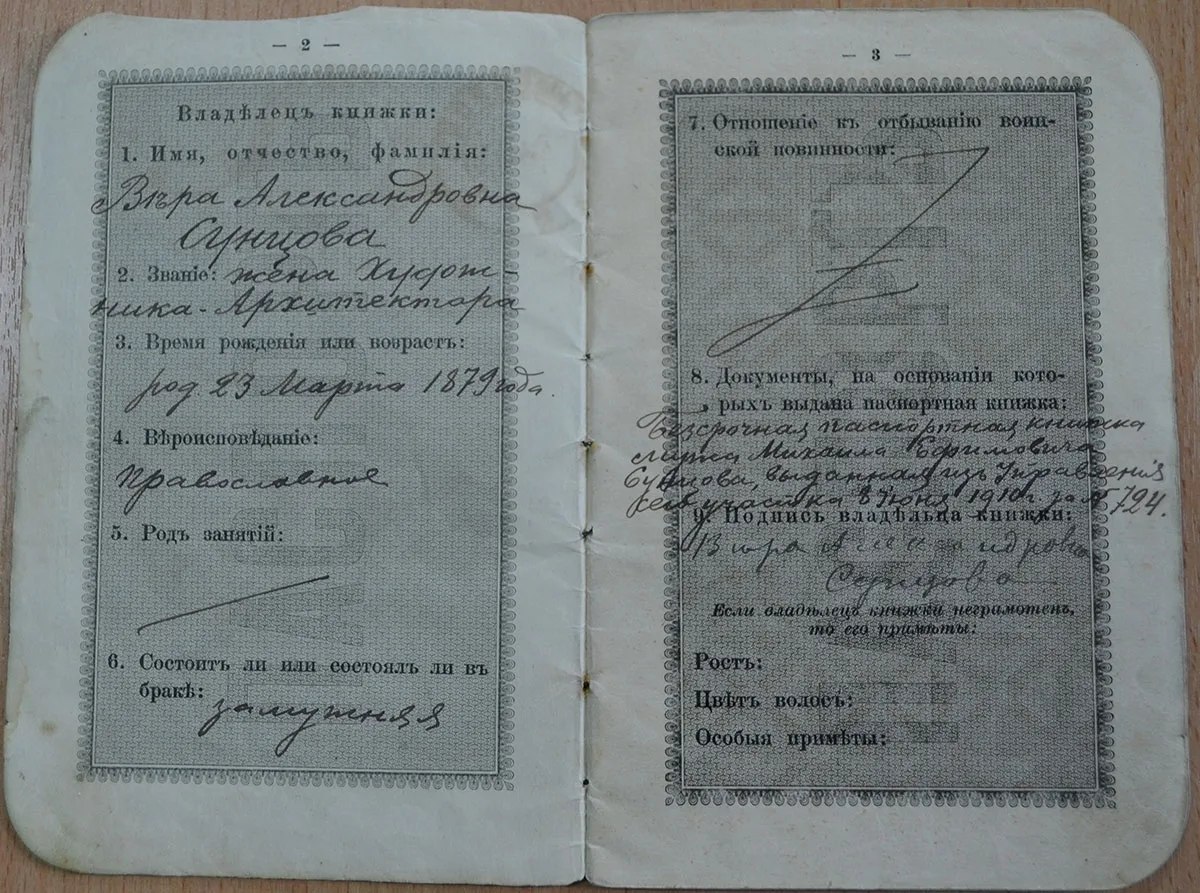 — 2 —
Владѣлецъ книжки:
1. Имя, отчество, фамилія:
Вѣра Александровна
Сунцова
2. Званіе: жена Худож-
ника-Архитектора
3. Время рожденія или возрастъ:
род. 23 Марта 1879 года.
4. Вѣроисповѣданіе:
православное
5. Родъ занятій:
6. Состоитъ ли или состоялъ ли въ
бракѣ: замужняя
— 3 —
7. Отношеніе къ отбыванію воин-
ской повинности:
8. Документы, на основаніи кото-
рыхъ выдана паспортная книжка:
Безсрочная паспортная книжка
мужа Михаила Ефимовича
Сунцова, выданная изъ Управленія
участка 8 Іюня 1910 г. за № 724.
9. Подпись владѣльца книжки:
Вѣра Александровна
Сунцова
Если владѣлецъ книжки неграмотенъ,
то его примѣты:
Ростъ:
Цвѣтъ волосъ:
Особыя примѣты: